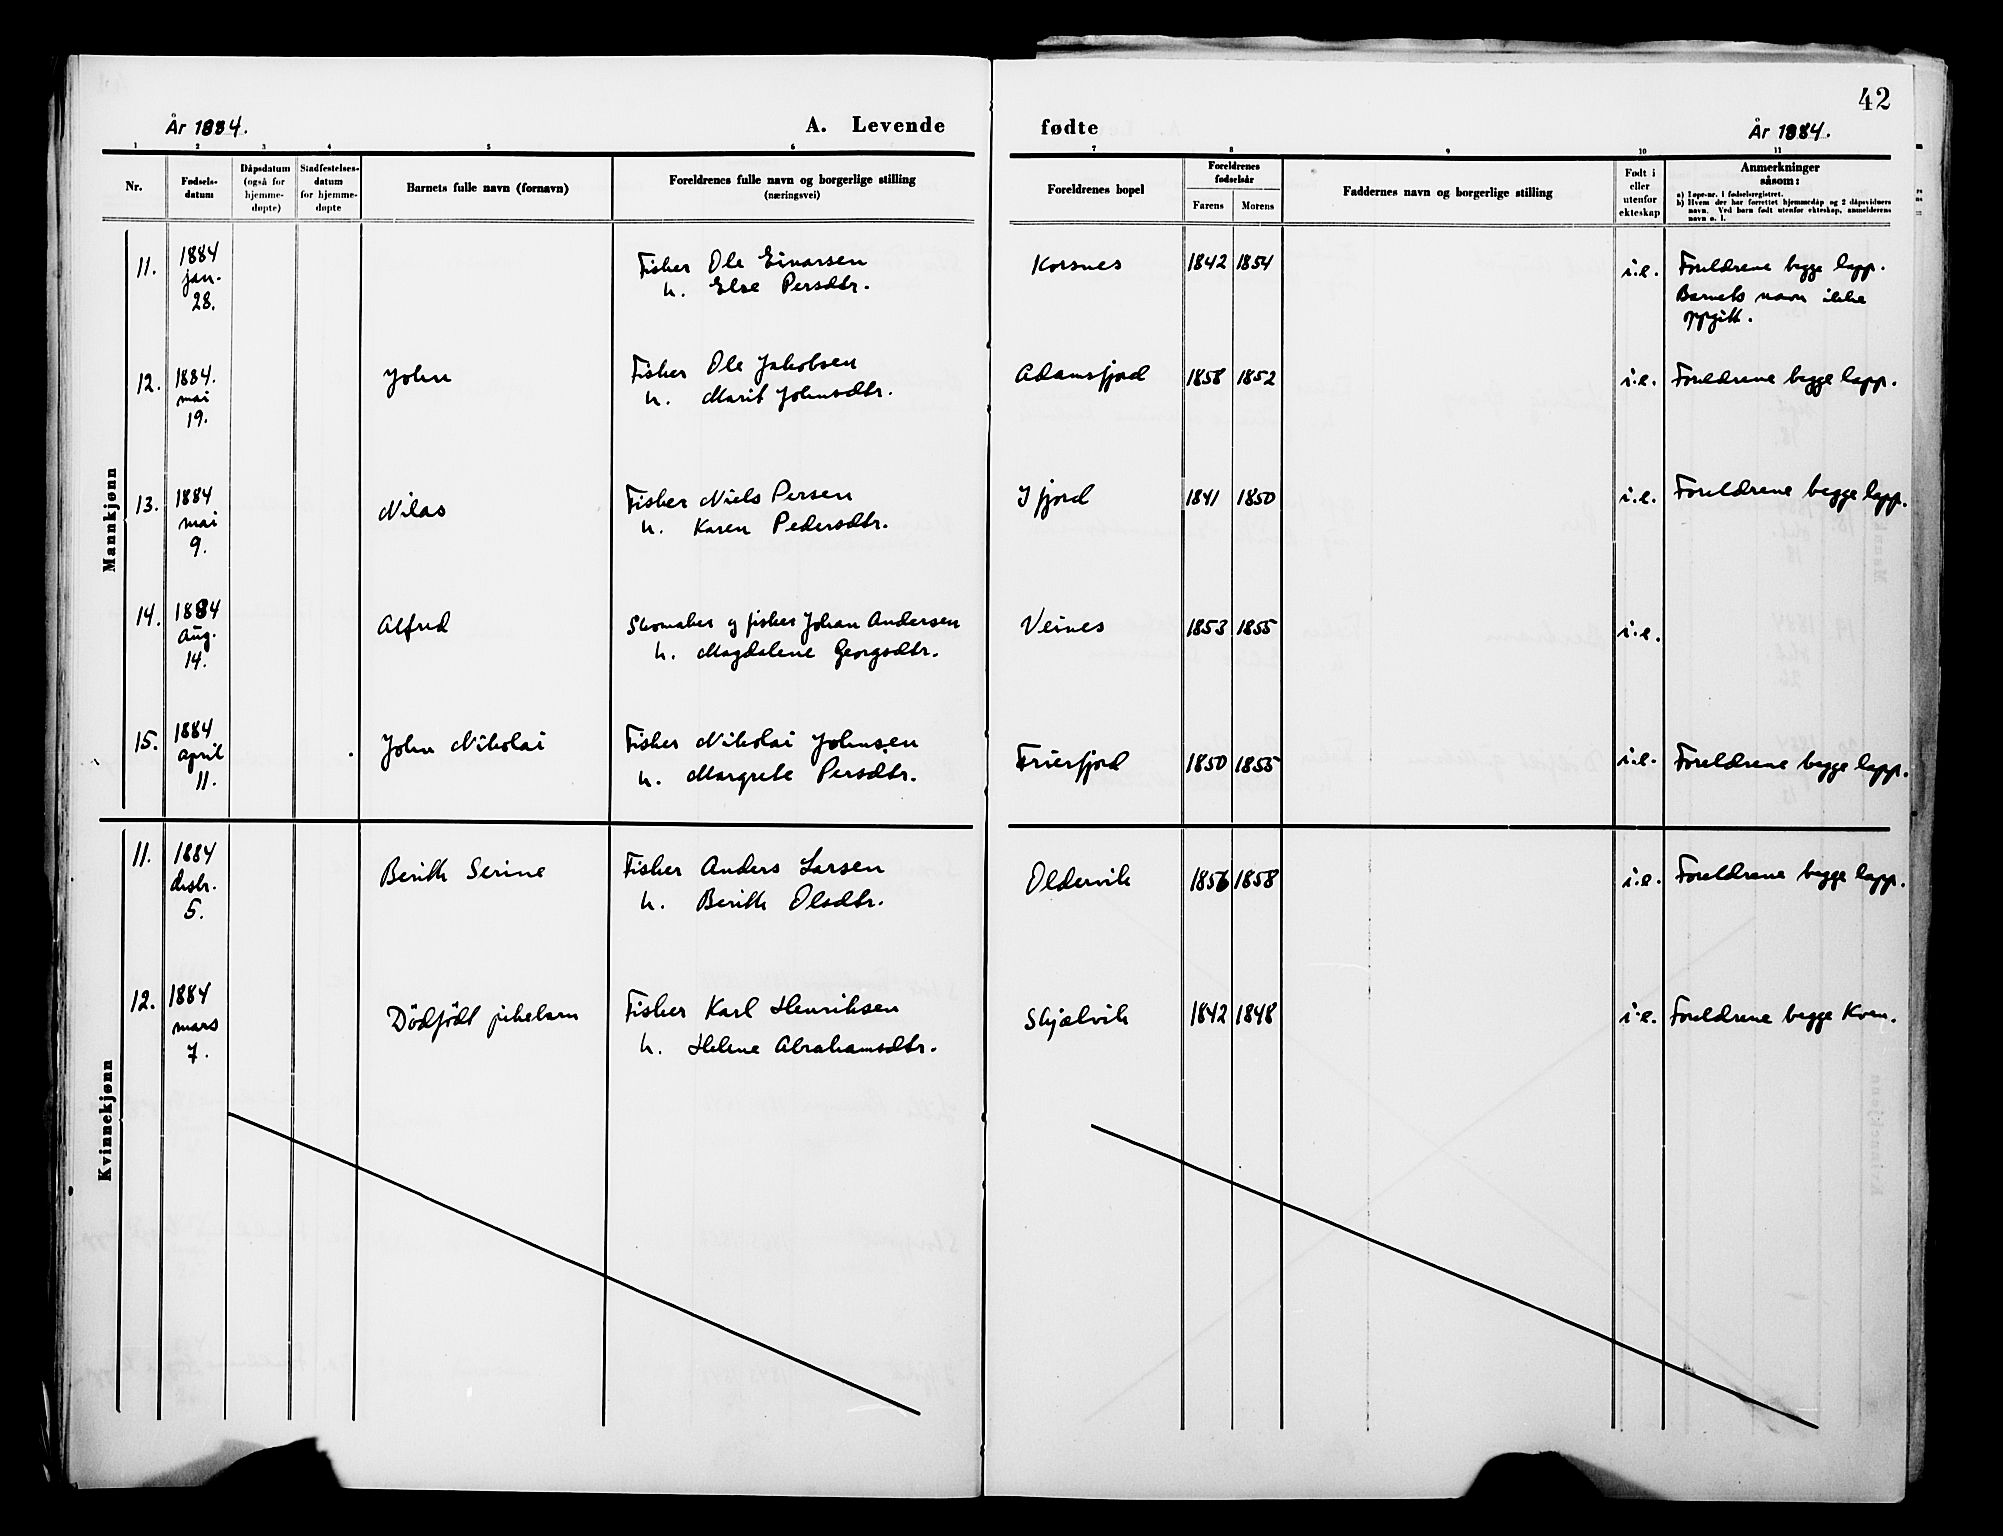 42
År 1884.
A. Levende
fødte
År 1884.
1 2 3 4 5 6 7 8 9 10 11
Nr.
Fødsels-
datum
Dåpsdatum
(også for
hjemme-
døpte)
Stadfestelses-
datum
for hjemme-
døpte
Barnets fulle navn (fornavn)
Foreldrenes fulle navn og borgerlige stilling
(næringsvei)
Foreldrenes bopel
Foreldrenes
fødselsår
Farens Morens
Faddernes navn og borgerlige stilling
Født i
eller
utenfor
ekteskap
Anmerkninger
såsom:
a) Løpe-nr. i fødselsregistret.
b) Hvem der har forrettet hjemmedåp og 2 dåpsvidners
navn. Ved barn født utenfor ekteskap, anmelderens
navn o. l.
Mannkjønn
11. 1884
jan.
28.
Fisker Ole Einarsen
h. Else Persdtr.
Korsnes 1842 1854 i.e. Foreldrene begge lapp.
Barnets navn ikke
oppgitt.
12. 1884.
mai
19.
John
Fisker Ole Jakobsen
h. Marit Johnsdtr.
Adamsfjord 1858 1852 i.e. Foreldrene begge lapp.
13. 1884
mai
9.
Nilas
Fisker Niels Persen
h. Karen Pedersdtr.
Ifjord 1841 1850 i.e. Foreldrene begge lapp.
14. 1884
Aug.
14.
Alfred
Skomaker og fisker Johan Andersen
h. Magdalene Georgsdtr.
Veines 1853 1855 i.e.
15. 1884
april
11.
John Nikolai
Fisker Nikolai Johnsen
h. Margrete Persdtr.
Frierfjord 1850 1855 i.e. Foreldrene begge lapp.
Kvinnekjønn
11. 1884
desbr.
5.
Berith Serine
Fisker Anders Larsen
h. Berith Olsdtr.
Oldervik 1856 1858 i.e. Foreldrene begge lapp.
12. 1884
mars
7.
Dödfödt pikebarn
Fisker Karl Henriksen
h. Helene Abrahamsdtr.
Skjælvik 1842 1848 i.e. Foreldrene begge Kven.